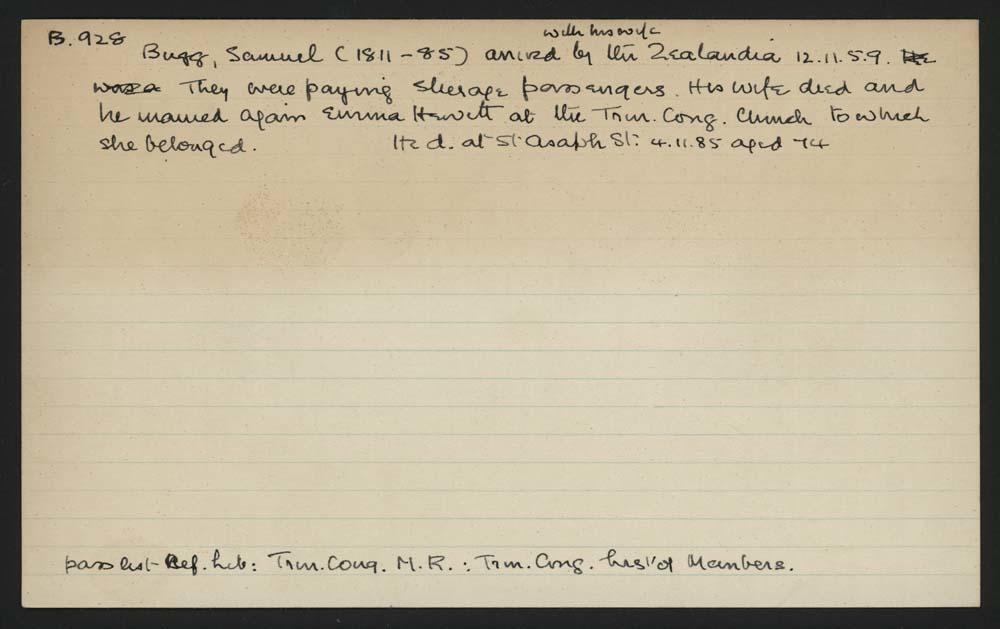 B.928
with his wife
Bugg, Samuel (1811 - 85) arrived by the Zealandia 12.11.59. He
was a They were paying steerage passengers. His wife died and
he married again Emma Hewitt at the Trin. Cong. Church to which
she belonged. He d. at St Asaph St: 4.11.85 aged 74
pass list Ref. Lib: Trin. Cong. M.R.: Trin. Cong. List of Members.